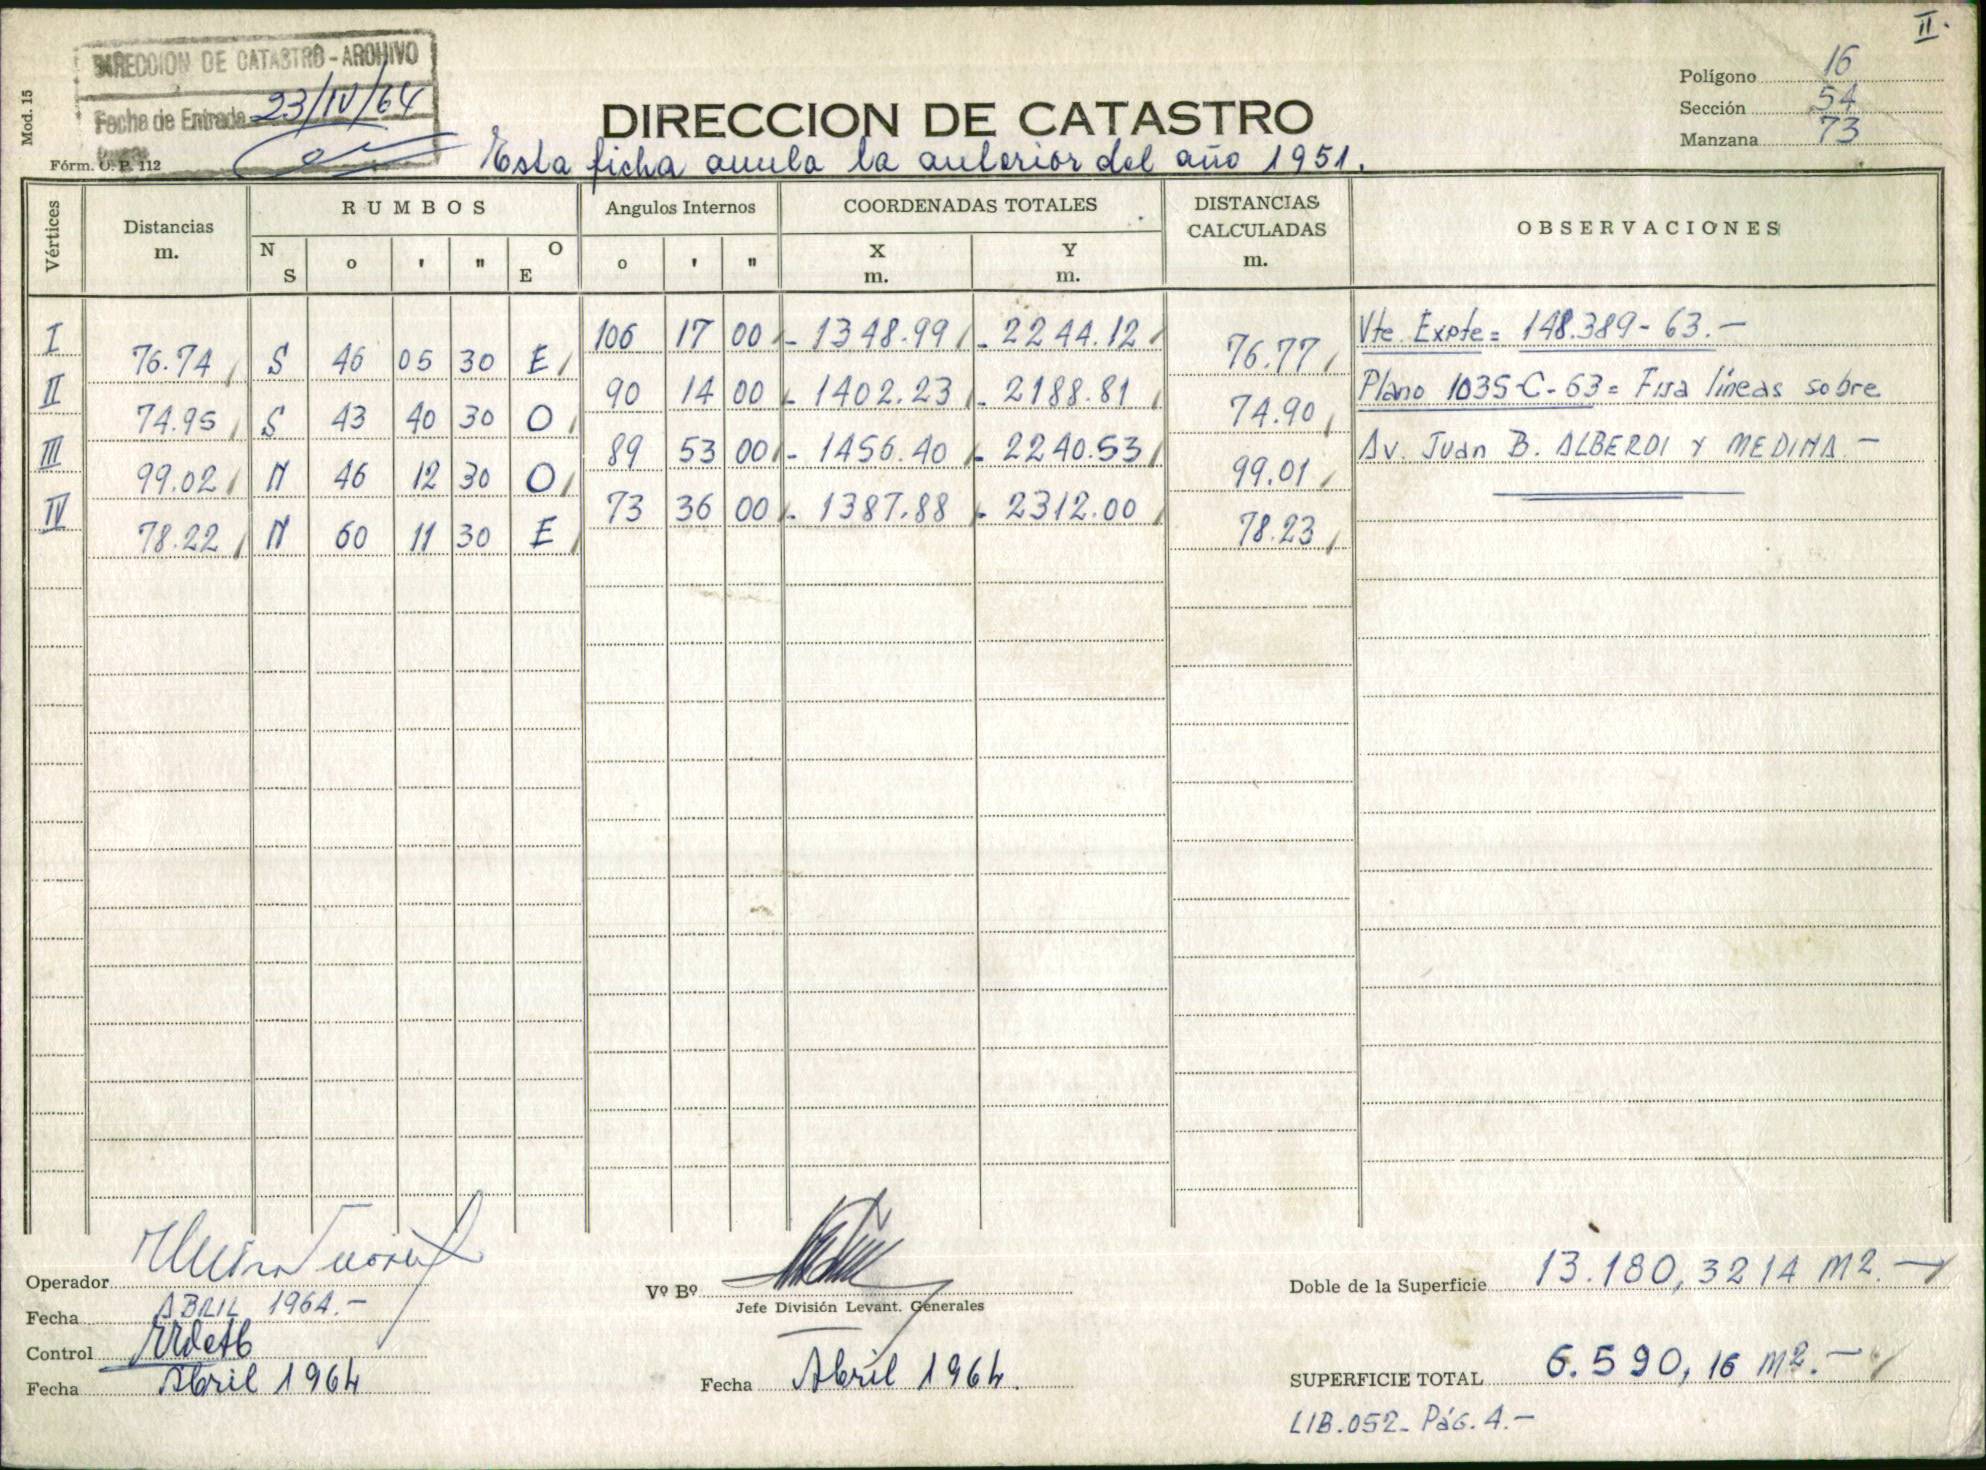 II.
DIRECCION DE CATASTRO - ARCHIVO
Fecha de Entrada 23/IV/64
Mod. 15
Fórm. O. P. 112
DIRECCION DE CATASTRO
Esta ficha anula la anterior del año 1951.
Polígono 16
Sección 54
Manzana 73
Vértices Distancias m. RUMBOS Angulos Internos COORDENADAS TOTALES DISTANCIAS CALCULADAS m. OBSERVACIONES
N S o ' " O E o ' " X m. Y m.
I 106 17 00 - 1348.99 - 2244.12 Vte. Expte = 148.389 - 63. -
76.74 S 46 05 30 E 76.77
II 90 14 00 - 1402.23 - 2188.81 Plano 1035-C-63 = Fija líneas sobre
74.95 S 43 40 30 O 74.90
III 89 53 00 - 1456.40 - 2240.53 Av. Juan B. ALBERDI Y MEDINA -
99.02 N 46 12 30 O 99.01
IV 73 36 00 - 1387.88 - 2312.00
78.22 N 60 11 30 E 78.23
Operador
Fecha ABRIL 1964. -
Control
Fecha Abril 1964
Vº Bº
Jefe División Levant. Generales
Fecha Abril 1964.
Doble de la Superficie 13.180,3214 M2. -
SUPERFICIE TOTAL 6.590,16 M2. -
LIB. 052 - Pág. 4. -